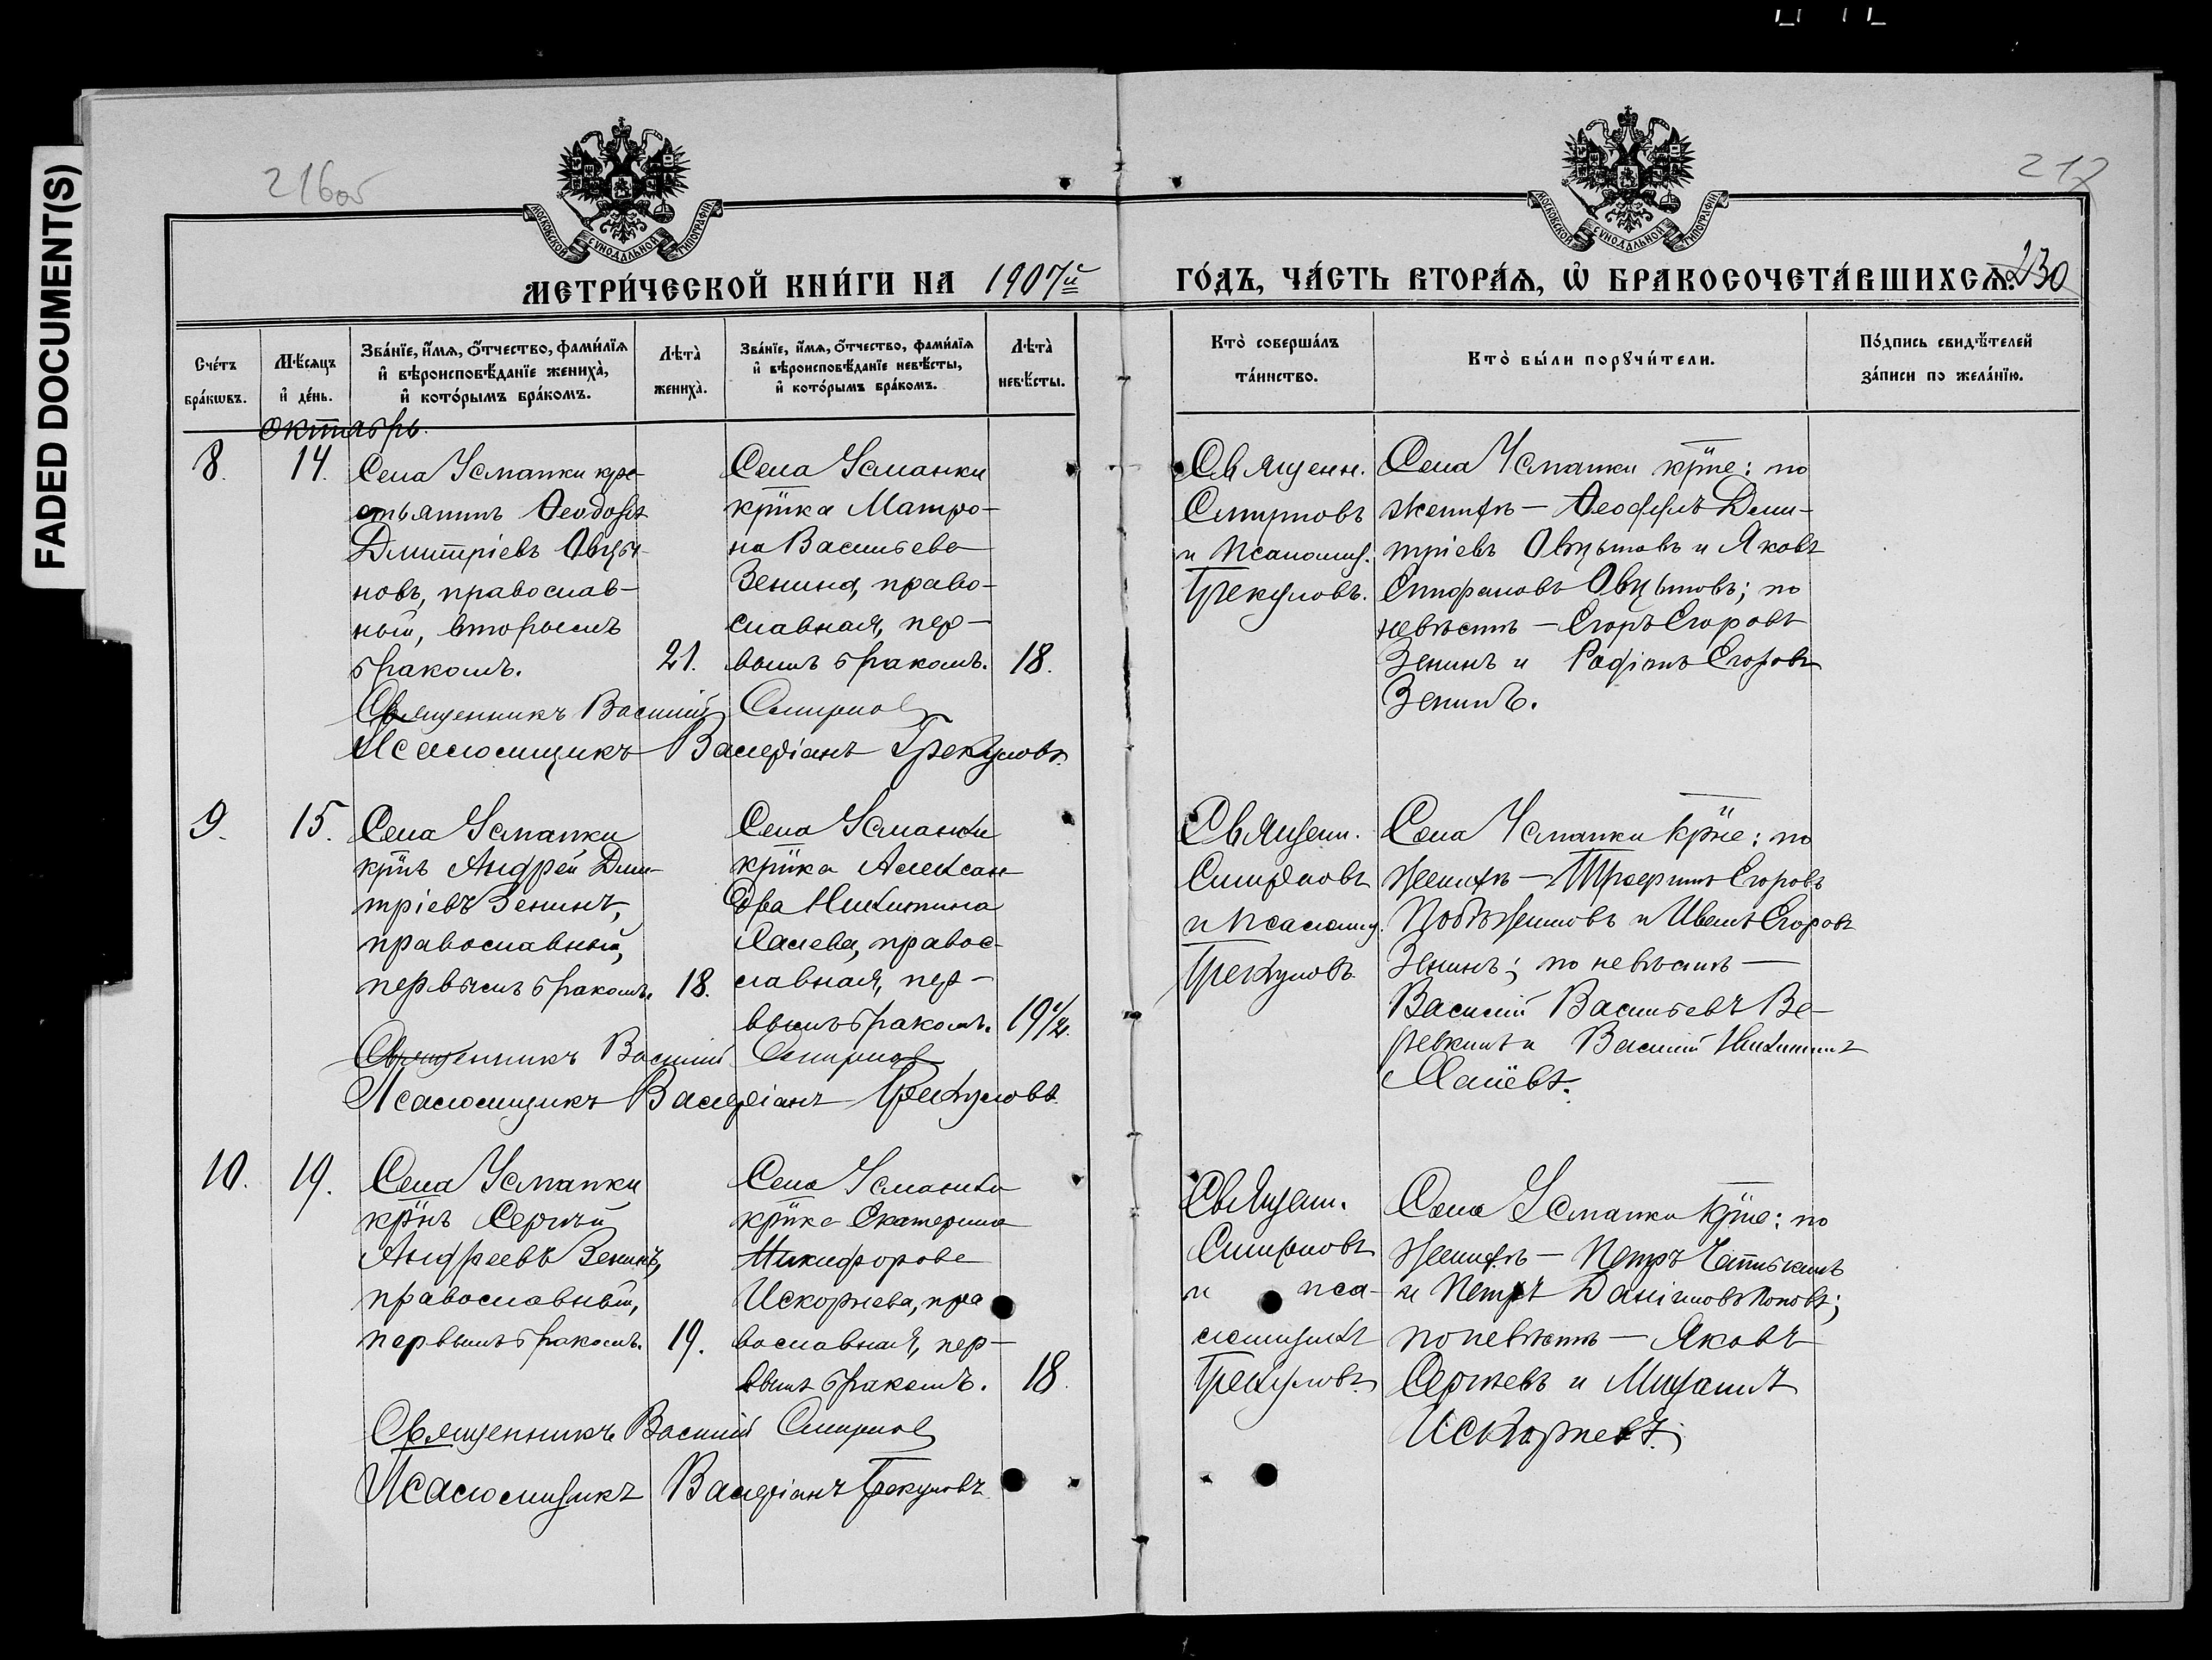 FADED DOCUMENT(S)
216об
217
МОСКОВСКОЙ СѴНОДАЛЬНОЙ ТИПОГРАФІИ
МОСКОВСКОЙ СѴНОДАЛЬНОЙ ТИПОГРАФІИ
МЕТРИ́ЧЕСКОЙ КНИ́ГИ НА 1907й ГО́ДЪ, ЧА́СТЬ ВТОРА́Ѧ, Ѡ҆ БРАКОСОЧЕТА́ВШИХСѦ.
230
Сче́тъ бра́кѡвъ.
Мѣ́сяцъ и҆ де́нь.
Зва́нїе, и҆́мѧ, ѻ҆́тчество, фами́лїѧ и҆ вѣроисповѣ́данїе жениха̀, и҆ кото́рымъ бра́комъ.
Лѣта̀ жениха̀.
Зва́нїе, и҆́мѧ, ѻ҆́тчество, фами́лїѧ и҆ вѣроисповѣ́данїе невѣ́сты, и҆ кото́рымъ бра́комъ.
Лѣта̀ невѣ́сты.
Кто̀ соверша́лъ та́инство.
Кто̀ бы́ли порꙋчи́тели.
По́дпись свидѣ́телей за́писи по жела́нїю.
Октябрь.
8.
14.
Села Усманки кре-
стьянинъ Ѳеодосій
Дмитріевъ Овцы-
новъ, православ-
ный, вторымъ
бракомъ.
21.
Села Усманки
кр̅нка Матро-
на Васильева
Зенина, право-
славная, пер-
вымъ бракомъ.
18.
Священн.
Смирновъ
и псаломщ.
Грекуловъ.
Села Усманки кр̅не: по
женихѣ — Ѳеофилъ Дми-
тріевъ Овцыновъ и Яковъ
Стефановъ Овцыновъ; по
невѣстѣ — Егоръ Егоровъ
Зенинъ и Родіонъ Егоровъ
Зенинъ.
Священникъ Василій Смирнов
Псаломщикъ Валеріанъ Грекуловъ.
9.
15.
Села Усманки
кр̅нъ Андрей Дми-
тріевъ Зенинъ,
православный,
первымъ бракомъ.
18.
Села Усманки
кр̅нка Алексан-
дра Никитина
правос-
славная, пер-
вымъ бракомъ.
19½.
Священ.
Смирновъ
и псаломщ.
Грекуловъ.
Села Усманки кр̅не: по
женихѣ — Егоровъ
и Иванъ Егоровъ
Зенинъ; по невѣстѣ —
Василій Васильевъ Ве-
ревкинъ и Василій Никитинъ
Священникъ Василій Смирнов
Псаломщикъ Валеріанъ Грекуловъ.
10.
19.
Села Усманки
кр̅нъ Сергѣй
Андреевъ Зенинъ,
православный,
первымъ бракомъ.
19.
Села Усманки
кр̅нка Екатерина
Никифорова
Искорнева, пра
вославная, пер-
вымъ бракомъ.
18.
Священ.
Смирновъ
и пса-
ломщикъ
Грекуловъ.
Села Усманки кр̅не: по
женихѣ — Петръ
и Петръ Даніиловъ Поповъ;
по невѣстѣ — Яковъ
Сергѣевъ и Михаилъ
Искорневъ.
Священникъ Василій Смирнов
Псаломщикъ Валеріанъ Грекуловъ.